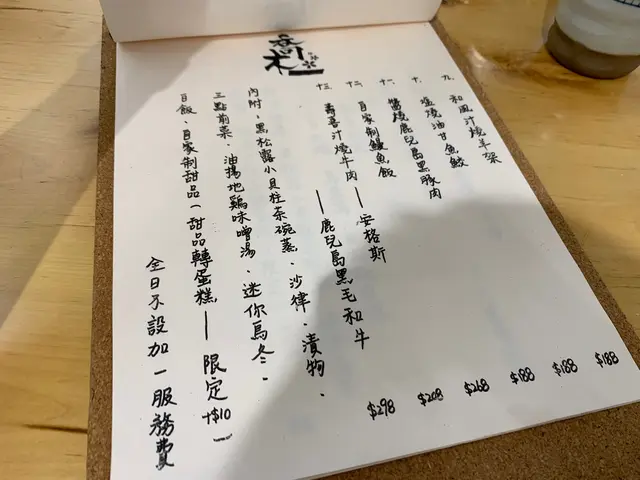 九、和風汁燒羊架 $188
十、塩燒油甘魚鮫 $188
十一、醬燒鹿兒島黑豚肉 $188
十二、自家制鰻魚飯 $268
十三、壽喜汁燒牛肉 — 安格斯 $208
— 鹿兒島黑毛和牛 $298
內附：黑松露小貝柱茶碗蒸、沙律、漬物、
三點前菜、油揚地鷄味噌湯、迷你烏冬、
白飯、自家制甜品(甜品轉蛋糕 — 限定+$10)
全日不設加一服務費